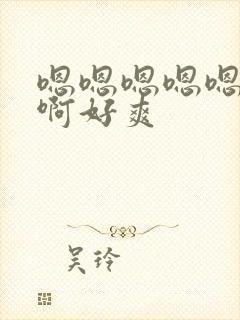 嗯嗯嗯嗯嗯
啊好爽
吴玲